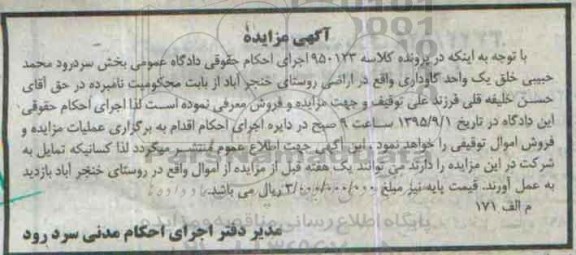 آگهی مزایده
با توجه به اینکه در پرونده کلاسه ۹۵۰۱۲۳ اجرای احکام حقوقی دادگاه عمومی بخش سردرود محمد
حبیبی خلق یک واحد گاوداری واقع در اراضی روستای خنجر آباد از بابت محکومیت نامبرده در حق آقای
حسن خلیفه قلی فرزند علی توقیف و جهت مزایده و فروش معرفی نموده است لذا اجرای احکام حقوقی
این دادگاه در تاریخ ۱۳۹۵/۹/۱ ساعت ۹ صبح در دایره اجرای احکام اقدام به برگزاری عملیات مزایده و
فروش اموال توقیفی را خواهد نمود. این آگهی جهت اطلاع عموم منتشر میگردد لذا کسانیکه تمایل به
شرکت در این مزایده را دارند می توانند یک هفته قبل از مزایده از اموال واقع در روستای خنجر آباد بازدید
به عمل آورند. قیمت پایه نیز مبلغ ۳/۰۰۰/۰۰۰/۰۰۰ ریال می باشد.
م الف ۱۷۱
مدیر دفتر اجرای احکام مدنی سرد رود